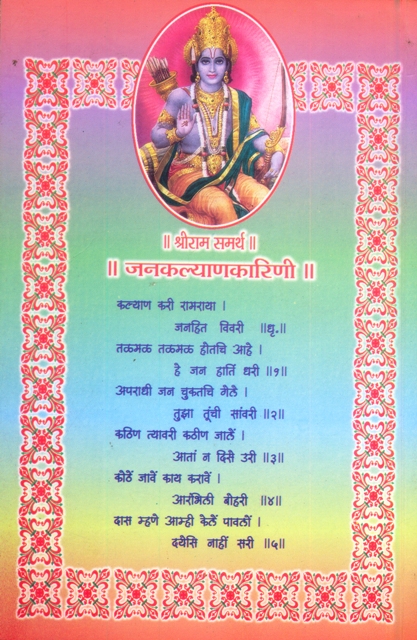 ॥ श्रीराम समर्थ ॥
॥ जनकल्याणकारिणी ॥
कल्याण करी रामराया ।
जनहित विवरी ॥धृ.॥
तळमळ तळमळ होतचि आहे ।
हे जन हातिं धरी ॥१॥
अपराधी जन चुकतचि गेले ।
तुझा तूंची सांवरी ॥२॥
कठिण त्यावरी कठीण जालें ।
आतां न दिसे उरी ॥३॥
कोठें जावें काय करावें ।
आरंभिली बोहरी ॥४॥
दास म्हणे आम्ही केलें पावलों ।
दयेसि नाहीं सरी ॥५॥